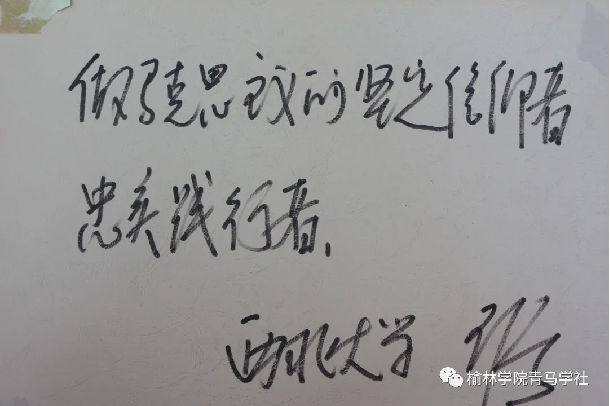 做马克思主义的坚定信仰者
忠实践行者、
西北大学
榆林学院青马学社